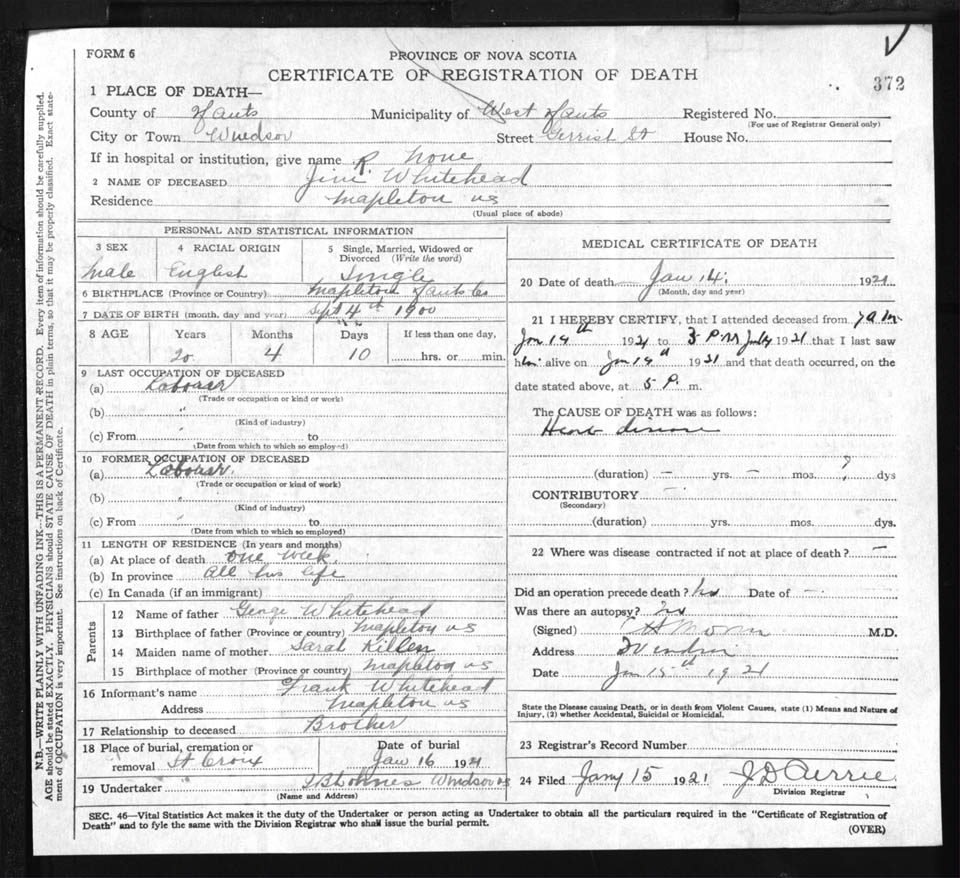 FORM 6
PROVINCE OF NOVA SCOTIA
CERTIFICATE OF REGISTRATION OF DEATH
372
1 PLACE OF DEATH—
County of Hants Municipality of West Hants Registered No.
(For use of Registrar General only)
City or Town Windsor Street Gerrish St House No.
If in hospital or institution, give name R. None
2 NAME OF DECEASED Jim Whitehead
Residence Mapleton NS
(Usual place of abode)
PERSONAL AND STATISTICAL INFORMATION
3 SEX Male
4 RACIAL ORIGIN English
5 Single, Married, Widowed or Divorced (Write the word) Single
6 BIRTHPLACE (Province or Country) Mapleton Hants Co
7 DATE OF BIRTH (month, day and year) Sept 4th 1900
8 AGE Years 20 Months 4 Days 10 If less than one day, hrs. or min.
9 LAST OCCUPATION OF DECEASED
(a) Labourer
(Trade or occupation or kind or work)
(b) "
(Kind of industry)
(c) From " to
(Date from which to which so employed)
10 FORMER OCCUPATION OF DECEASED
(a) Labourer
(Trade or occupation or kind of work)
(b) "
(Kind of industry)
(c) From " to
(Date from which to which so employed)
11 LENGTH OF RESIDENCE (In years and months)
(a) At place of death One Week
(b) In province All his life
(c) In Canada (if an immigrant)
Parents
12 Name of father George Whitehead
13 Birthplace of father (Province or country) Mapleton NS
14 Maiden name of mother Sarah Killen
15 Birthplace of mother (Province or country) Mapleton NS
16 Informant's name Frank Whitehead
Address Mapleton NS
17 Relationship to deceased Brother
18 Place of burial, cremation or removal St Croix
Date of burial Jan 16 1921
19 Undertaker Windsor NS
(Name and Address)
MEDICAL CERTIFICATE OF DEATH
20 Date of death Jan 14, 1921
(Month, day and year)
21 I HEREBY CERTIFY, that I attended deceased from 7 a.m.
Jan 14th 1921 to 5 P.M. 1921 that I last saw
him alive on Jan 14th 1921 and that death occurred, on the
date stated above, at 5 P. m.
The CAUSE OF DEATH was as follows:
Heart disease
(duration) — yrs. — mos. ? dys
CONTRIBUTORY —
(Secondary)
(duration) yrs. mos. dys.
22 Where was disease contracted if not at place of death? —
Did an operation precede death? No Date of —
Was there an autopsy? No
(Signed) M.D.
Address Windsor
Date Jan 15th 1921
State the Disease causing Death, or in death from Violent Causes, state (1) Means and Nature of
Injury, (2) whether Accidental, Suicidal or Homicidal.
23 Registrar's Record Number
24 Filed Jany 15 1921
Division Registrar
SEC. 46—Vital Statistics Act makes it the duty of the Undertaker or person acting as Undertaker to obtain all the particulars required in the "Certificate of Registration of
Death" and to fyle the same with the Division Registrar who shall issue the burial permit.
(OVER)
N.B.—WRITE PLAINLY WITH UNFADING INK—THIS IS A PERMANENT RECORD. Every item of information should be carefully supplied.
AGE should be stated EXACTLY. PHYSICIANS should STATE CAUSE OF DEATH in plain terms, so that it may be properly classified. Exact state-
ment of OCCUPATION is very important. See instructions on back of Certificate.